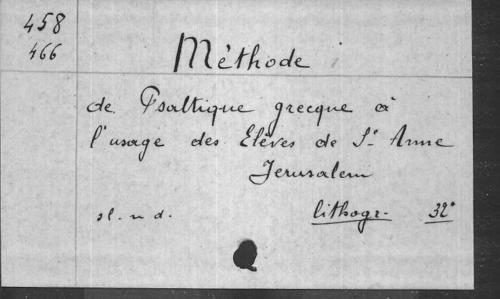 458
466
Méthode
de Psaltique grecque à
l'usage des Elèves de St Anne
Jerusalem
sl. n d. lithogr. 32°